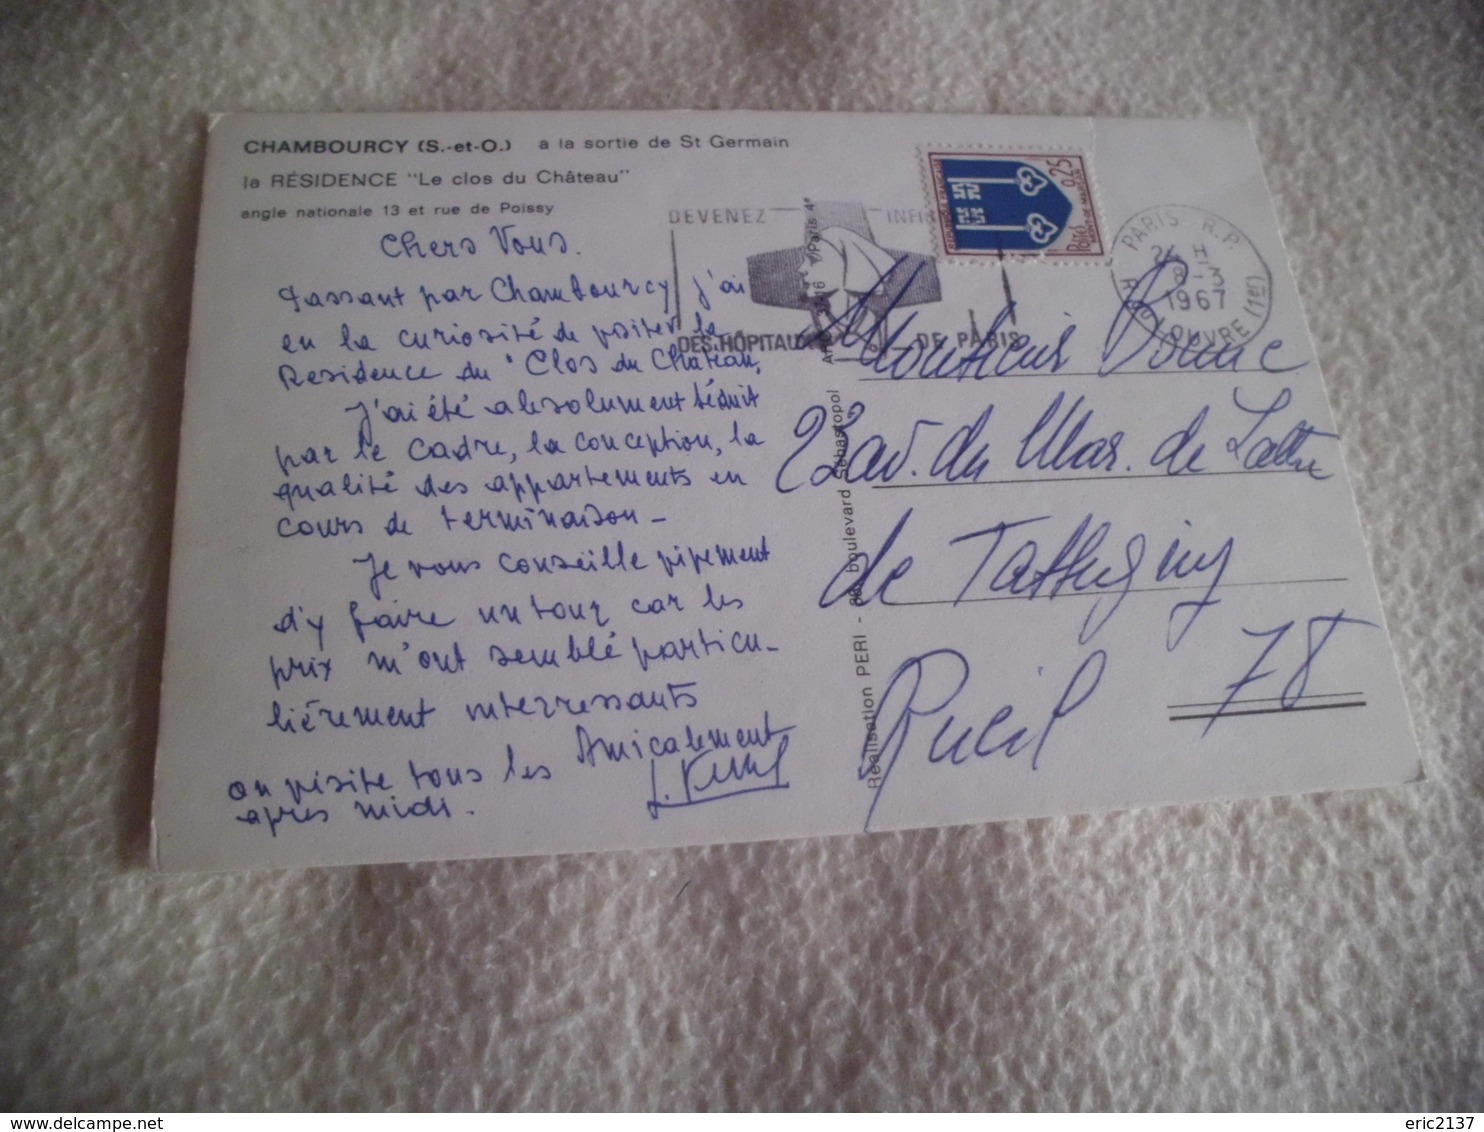 CHAMBOURCY (S.-et-O.) à la sortie de St Germain
la RÉSIDENCE "Le clos du Château"
angle nationale 13 et rue de Poissy
Chers Vous.
Passant par Chambourcy j'ai
eu la curiosité de visiter la
Residence du "Clos du Château,
J'ai été absolument séduit
par le cadre, la conception, la
qualité des appartements en
cours de terminaison_
Je vous conseille vivement
d'y faire un tour car les
prix m'ont semblé particu_
lièrement interressants
Amicalement
on visite tous les
après midi.
DEVENEZ INFIR
DES HÔPITAU DE PARIS
POSTES
0,25
REPUBLIQUE FRANÇAISE
MONT-DE-MARSAN
PARIS R.P.
1967
R. DU LOUVRE (1er)
Réalisation PERI - boulevard Sébastopol
Paris 4e
Monsieur
22 av. du Mar. de Lattre
de Tassigny
Rueil
78
eric2137